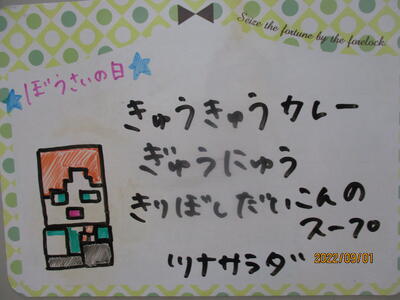 Seize the fortune by the forelock.
ぼうさいの日
きゅうきゅうカレー
ぎゅうにゅう
きりぼしだいこんの
スープ
ツナサラダ
2022/09/01